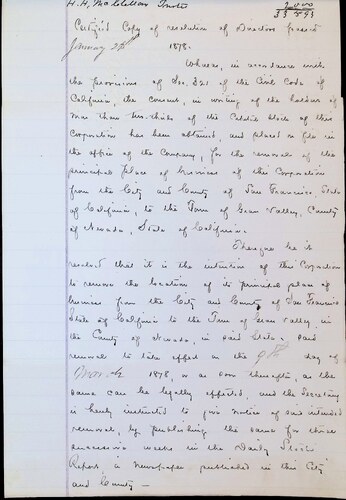 H. H. McClellan Trustee
Certified Copy of resolution of Directors present
January 28th 1878.
Whereas, in accordance with
the provisions of Sec. 321 of the Civil Code of
California, the consent, in writing of the holders of
more than two thirds of the Capital Stock of this
Corporation has been obtained, and placed on file in
the office of the Company, for the removal of the
principal place of business of this Corporation
from the City and County of San Francisco State
of California, to the Town of Grass Valley, County
of Nevada, State of California.
Therefore be it
resolved that it is the intention of this Corporation
to remove the location of its principal place of
business from the City and County of San Francisco
State of California to the Town of Grass Valley, in
the County of Nevada, in said State, said
removal to take effect on the 9th day of
March 1878, or as soon thereafter, as the
same can be legally effected, and the Secretary
is hereby instructed to give notice of said intended
removal, by publishing the same for three
successive weeks in the Daily Stock
Report a newspaper published in this City
and County —